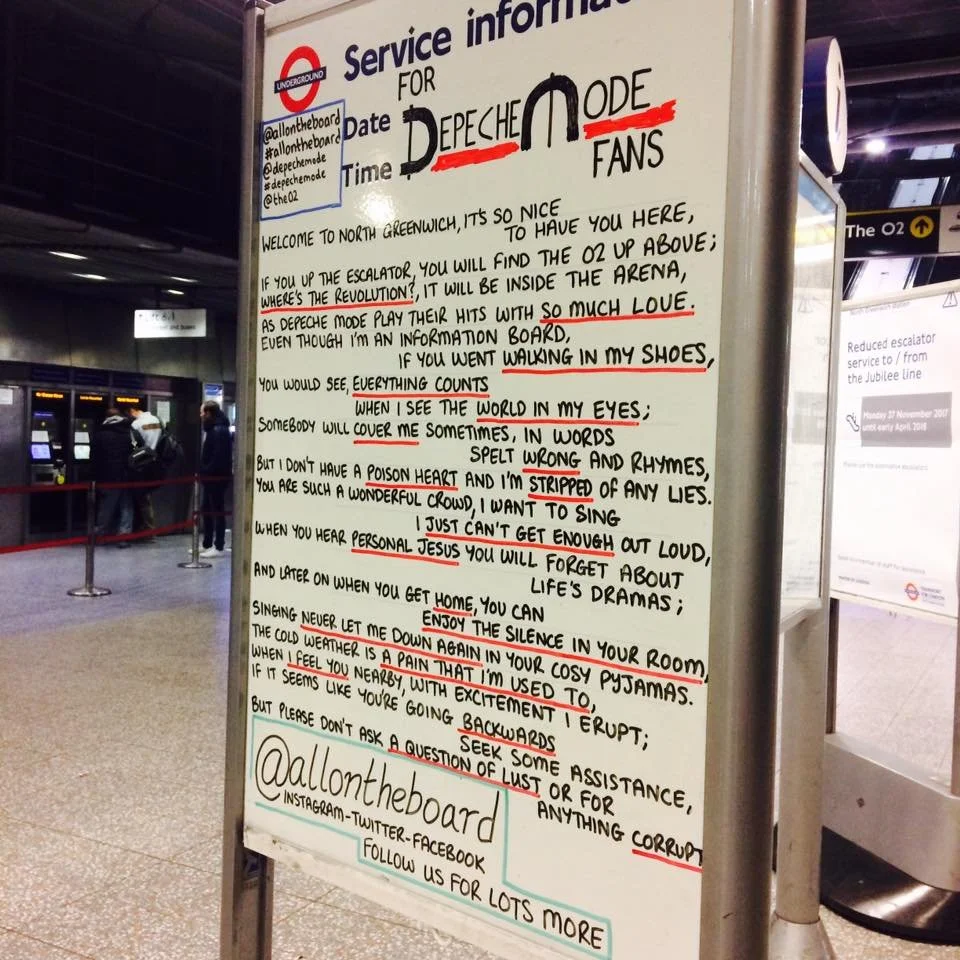 Service informa
UNDERGROUND
FOR
@allontheboard
#allontheboard
@depechemode
#depechemode
@theO2
Date
Time
DEPECHE MODE
FANS
WELCOME TO NORTH GREENWICH, IT'S SO NICE
TO HAVE YOU HERE,
IF YOU UP THE ESCALATOR, YOU WILL FIND THE O2 UP ABOVE;
WHERE'S THE REVOLUTION?, IT WILL BE INSIDE THE ARENA,
AS DEPECHE MODE PLAY THEIR HITS WITH SO MUCH LOVE.
EVEN THOUGH I'M AN INFORMATION BOARD,
IF YOU WENT WALKING IN MY SHOES,
YOU WOULD SEE, EVERYTHING COUNTS
WHEN I SEE THE WORLD IN MY EYES;
SOMEBODY WILL COVER ME SOMETIMES, IN WORDS
SPELT WRONG AND RHYMES,
BUT I DON'T HAVE A POISON HEART AND I'M STRIPPED OF ANY LIES.
YOU ARE SUCH A WONDERFUL CROWD, I WANT TO SING
I JUST CAN'T GET ENOUGH OUT LOUD,
WHEN YOU HEAR PERSONAL JESUS YOU WILL FORGET ABOUT
LIFE'S DRAMAS;
AND LATER ON WHEN YOU GET HOME, YOU CAN
ENJOY THE SILENCE IN YOUR ROOM,
SINGING NEVER LET ME DOWN AGAIN IN YOUR COSY PYJAMAS.
THE COLD WEATHER IS A PAIN THAT I'M USED TO,
WHEN I FEEL YOU NEARBY, WITH EXCITEMENT I ERUPT;
IF IT SEEMS LIKE YOU'RE GOING BACKWARDS
SEEK SOME ASSISTANCE,
BUT PLEASE DON'T ASK A QUESTION OF LUST OR FOR
ANYTHING CORRUPT
@allontheboard
INSTAGRAM-TWITTER-FACEBOOK
FOLLOW US FOR LOTS MORE
The O2
North Greenwich Station
Reduced escalator
service to / from
the Jubilee line
Monday 27 November 2017
until early April 2018